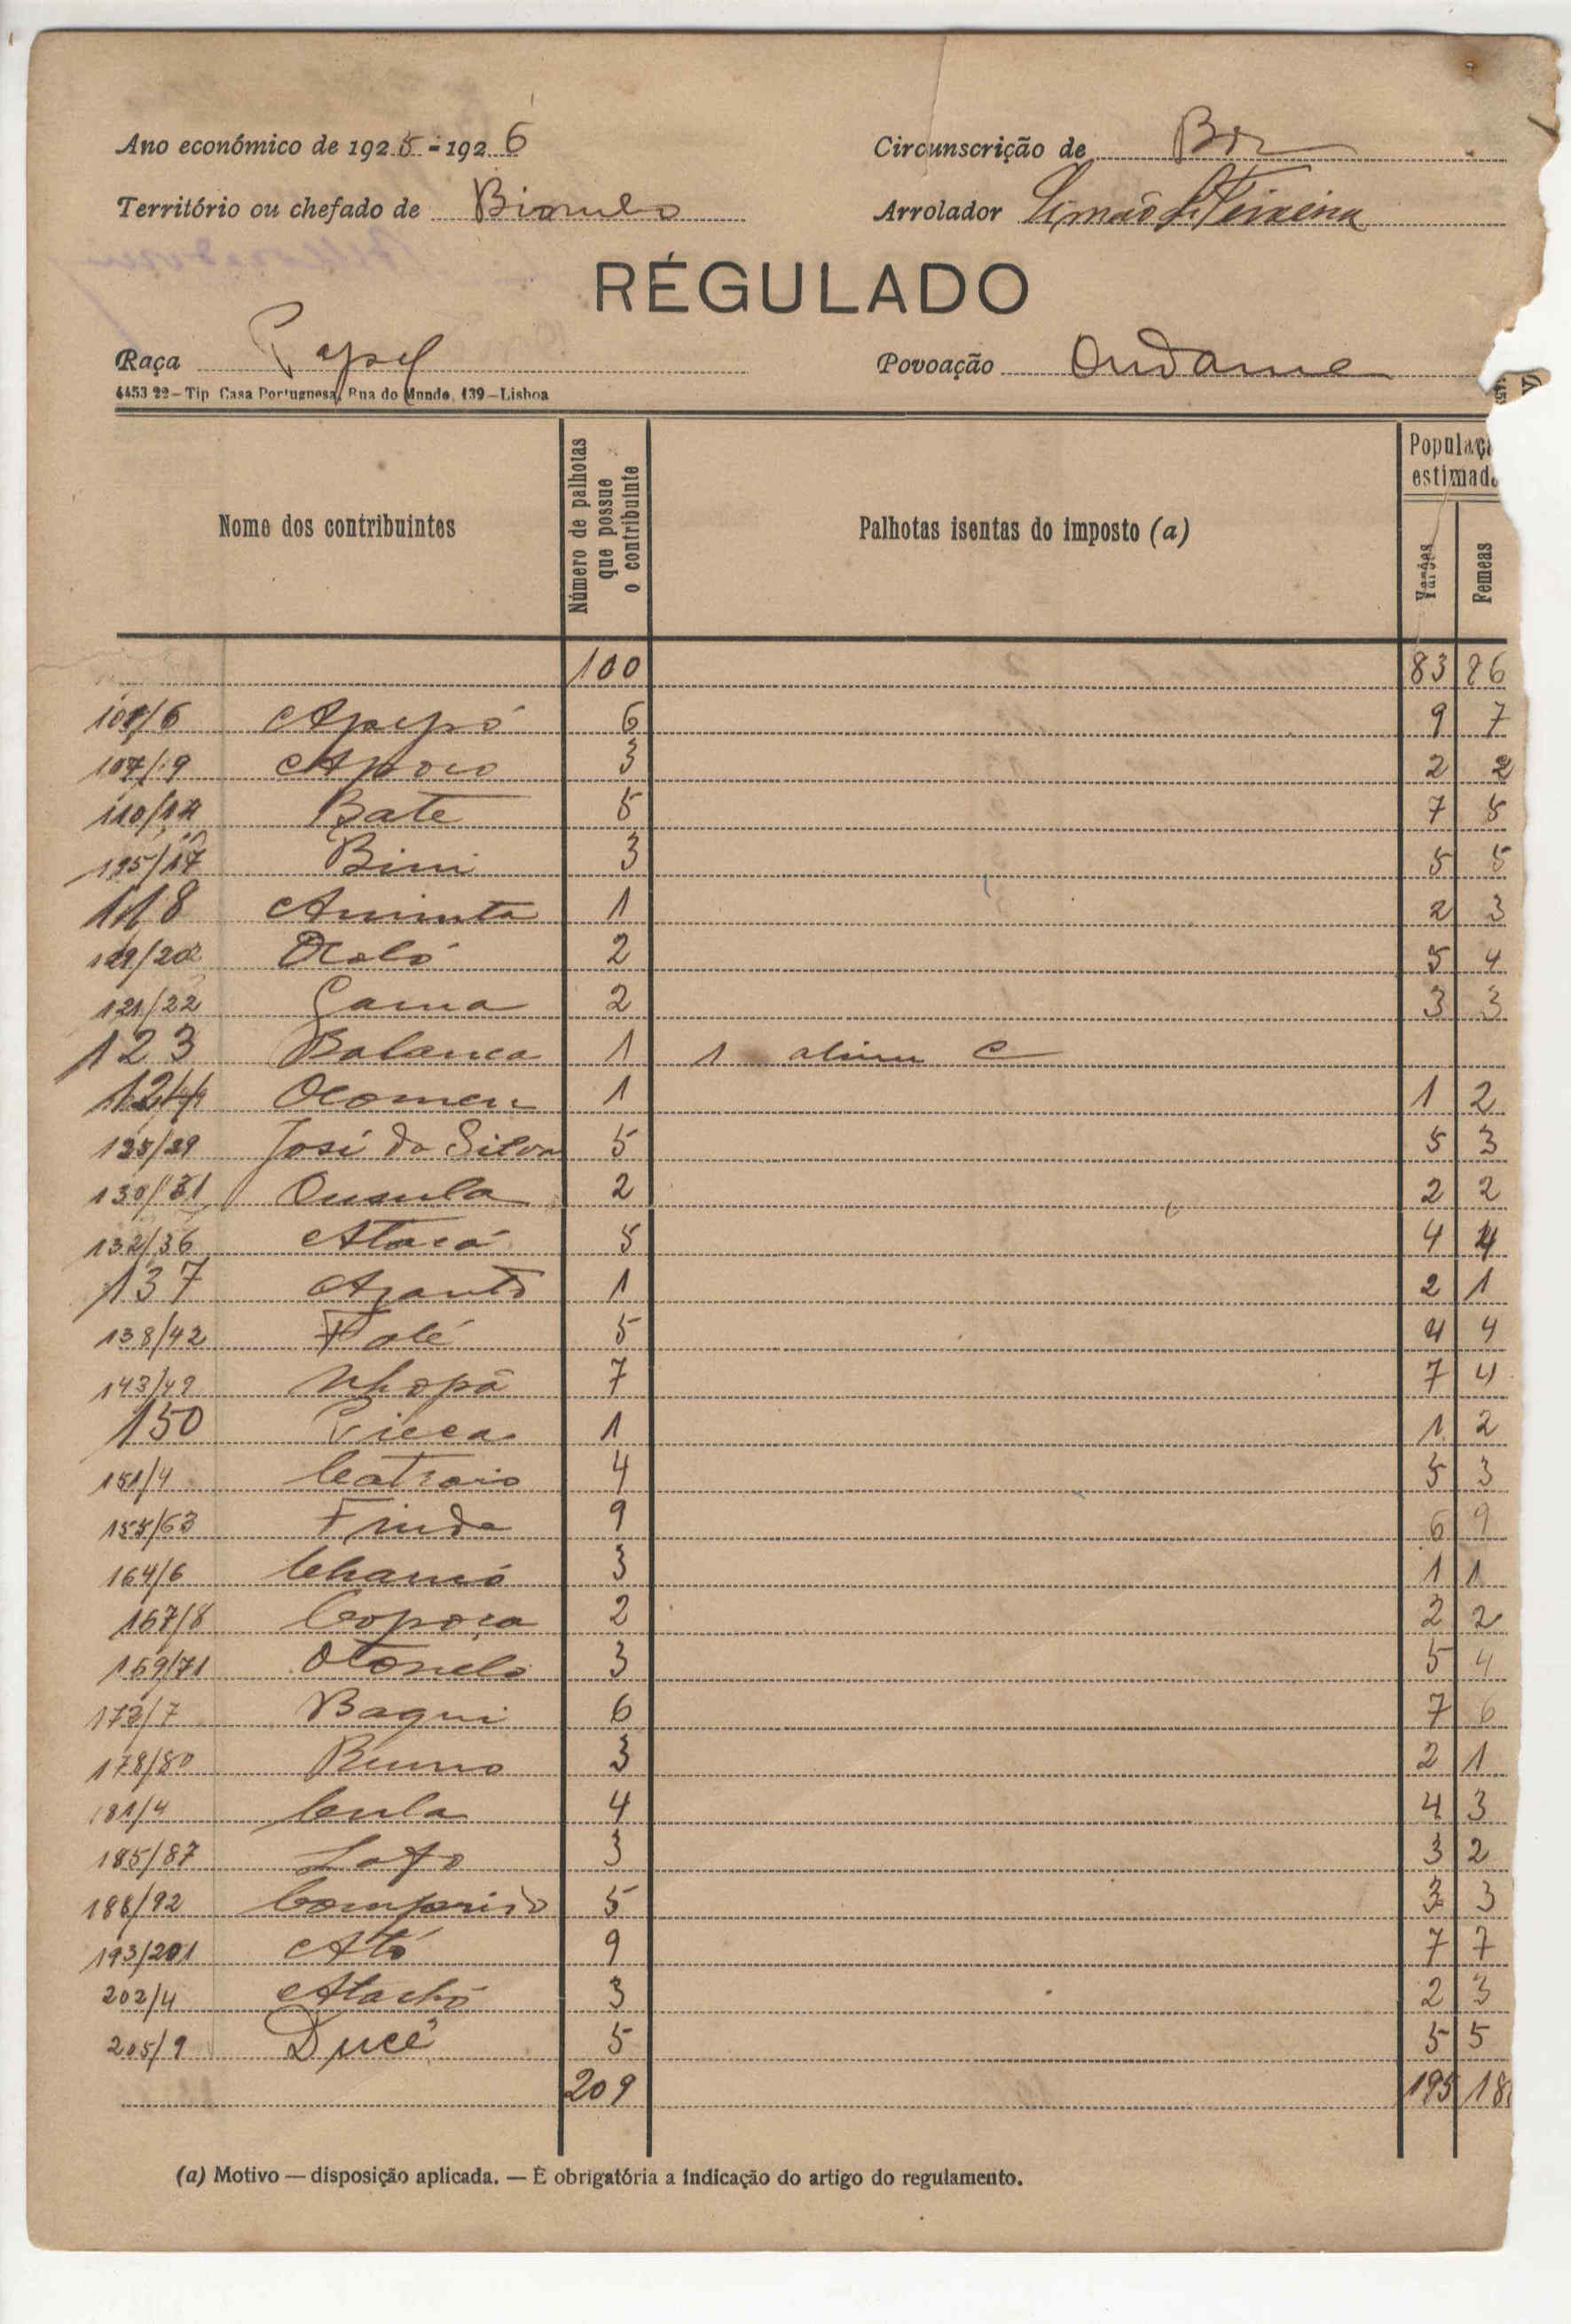 Ano económico de 1925-1926 Circunscrição de Bor
Território ou chefado de Biombo Arrolador Simão Teixeira
RÉGULADO
Raça Papel Povoação Ondame
4453 22–Tip Casa Portuguesa, Rua do Mundo, 139–Lisboa
Nome dos contribuintes Número de palhotas que possue o contribuinte Palhotas isentas do imposto (a) Populaç estimad Varões Femeas
100 83 86
101/6 Apipó 6 9 7
107/9 Apoio 3 2 2
110/14 Bate 5 7 5
115/17 Bini 3 5 5
118 1 2 3
119/20 Ocoló 2 5 4
121/22 Gama 2 3 3
123 Balanca 1 1
124 1 1 2
125/29 José da Silva 5 5 3
130/31 2 2 2
132/36 Atacá 5 4 4
137 1 2 1
138/42 Falé 5 4 4
143/49 Nhopá 7 7 4
150 1 1 2
151/4 Catraio 4 5 3
155/63 9 6 9
164/6 3 1 1
167/8 2 2 2
169/71 3 5 4
172/7 Baqui 6 7 6
178/80 3 2 1
181/4 Cula 4 4 3
185/87 3 3 2
188/92 Comprido 5 3 3
193/201 Ató 9 7 7
202/4 Atachó 3 2 3
205/9 Ducé 5 5 5
209 195 18
(a) Motivo — disposição aplicada. — É obrigatória a indicação do artigo do regulamento.